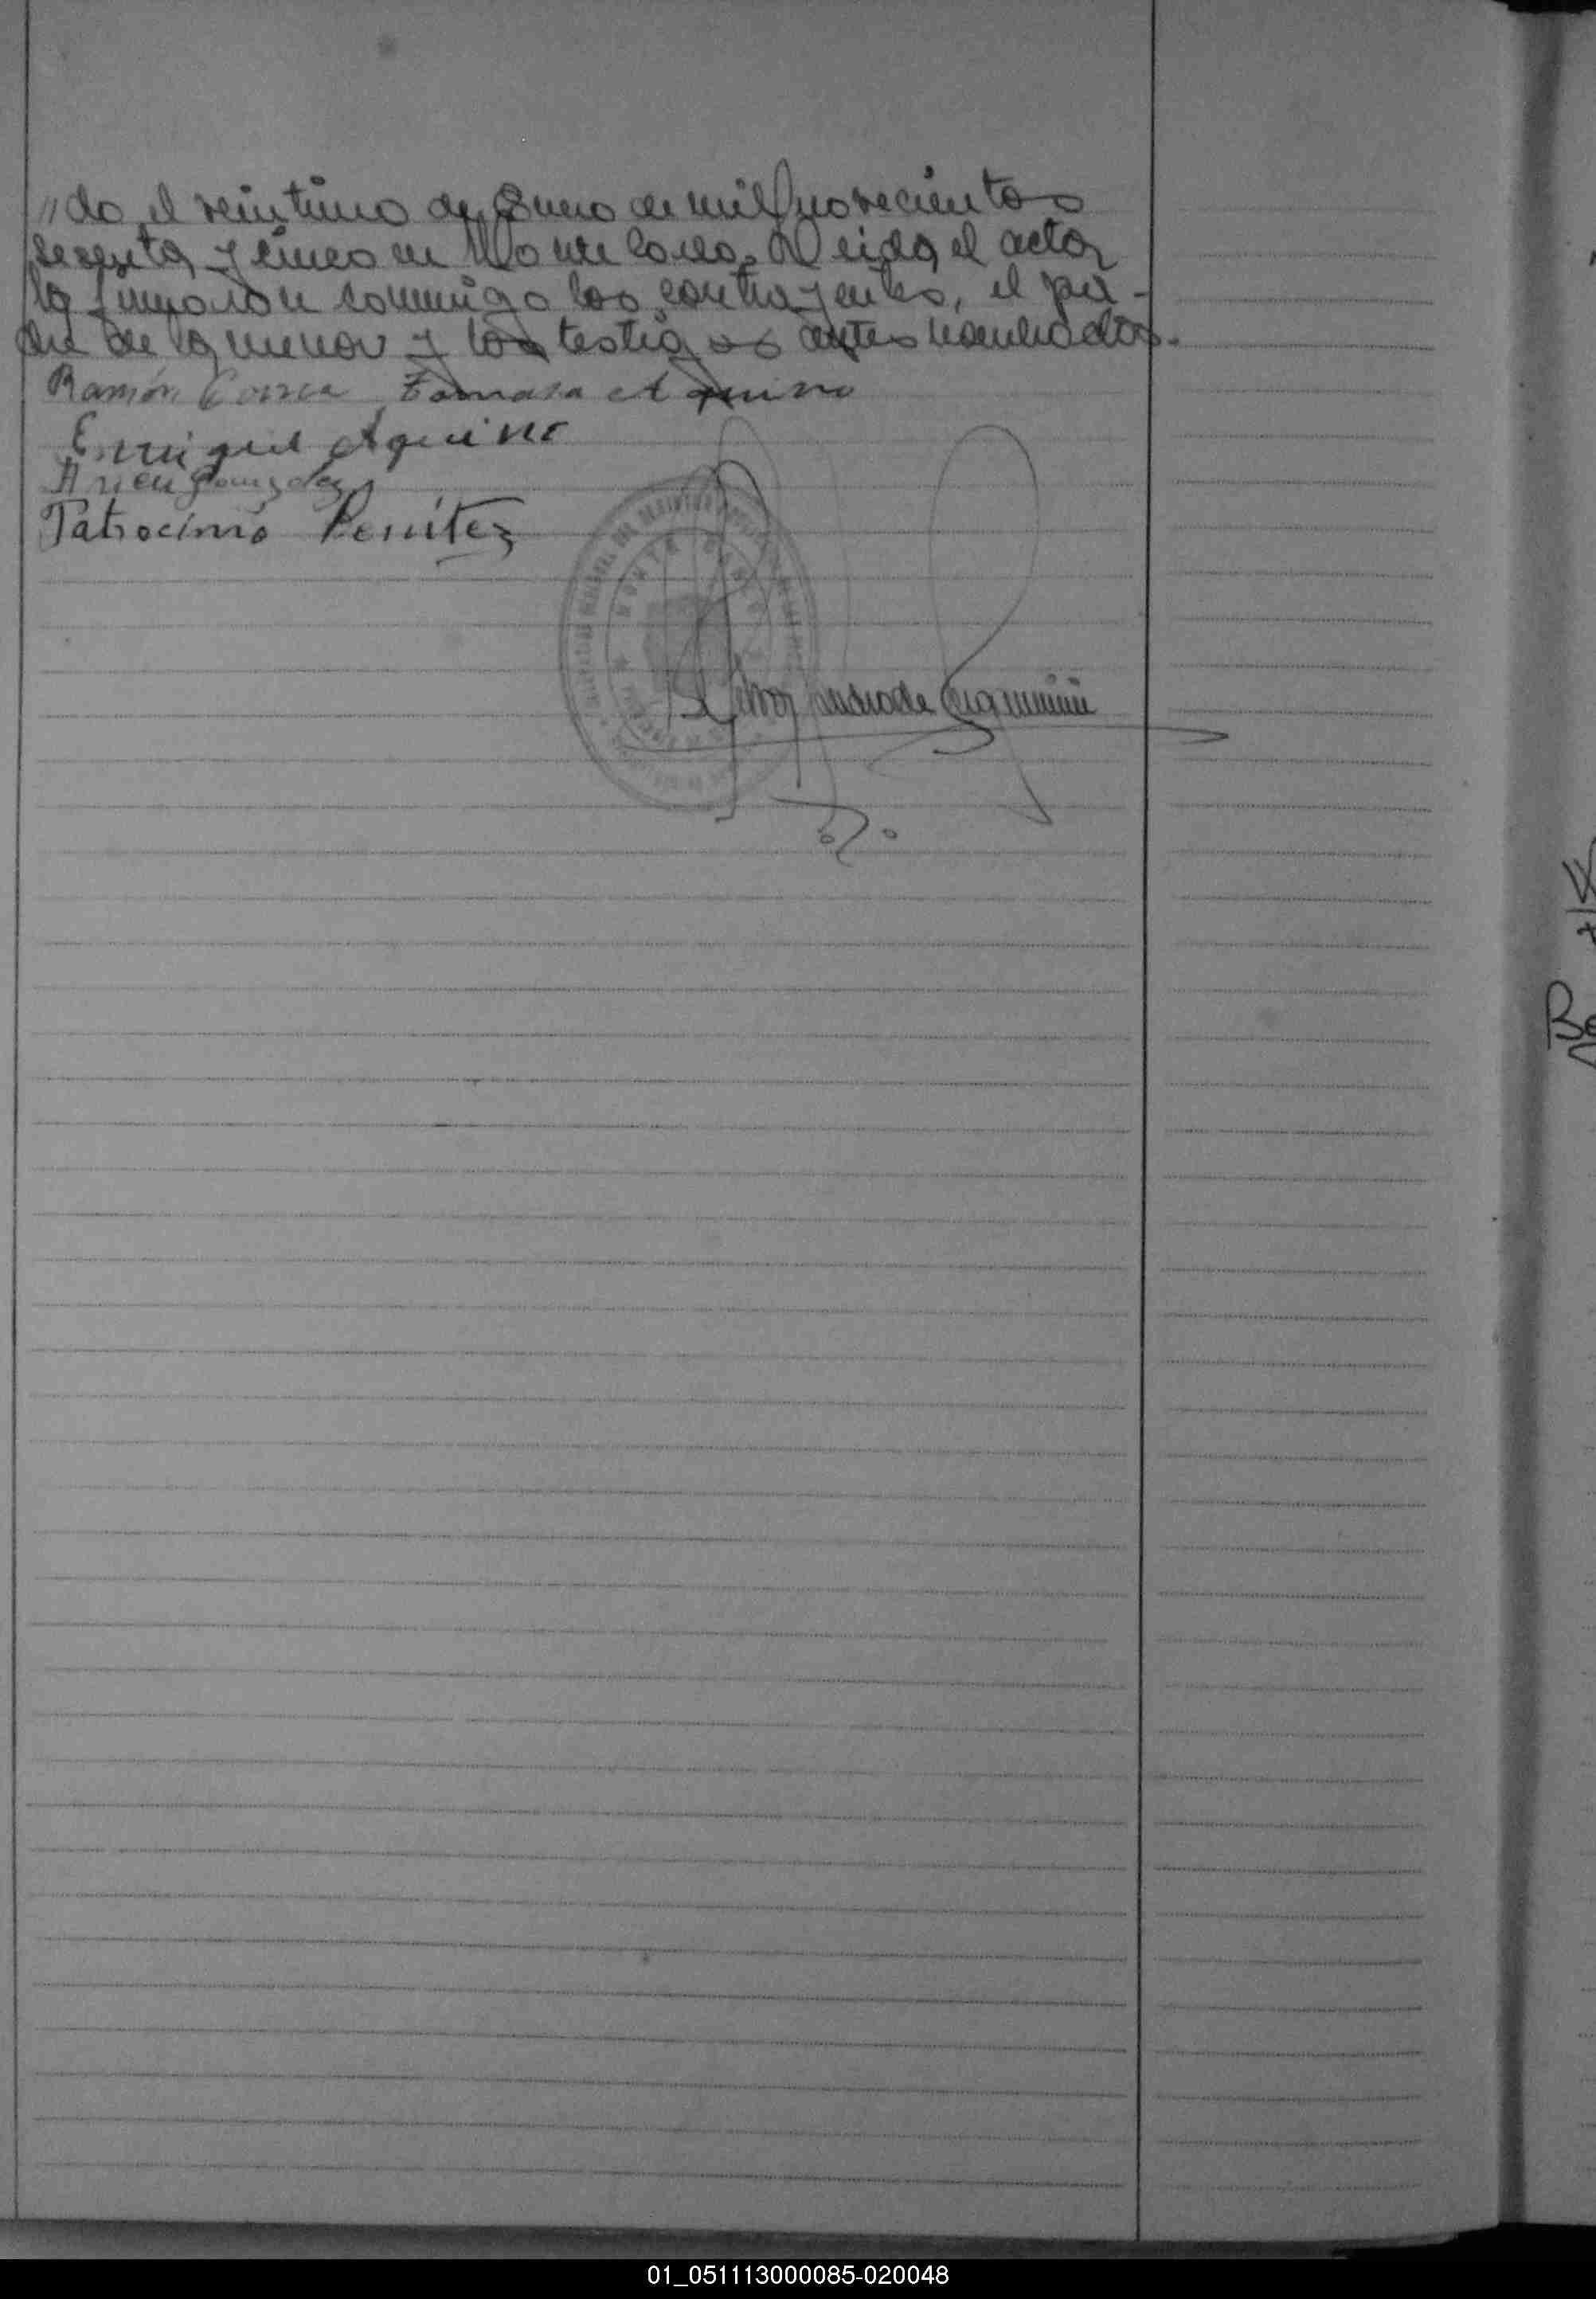 "do el veintiuno de Enero de mil novecientos
sesenta y cinco en Monte Caseros. Leida el acta
la firmaron conmigo los contrayentes, el pa-
dre de la menor y los testigos antes nombrados.
Ramón Correa Tomasa Aquino
Enrique Aquino
González
Patrocinio Benítez
MONTE CASEROS
Bo
01_051113000085-020048